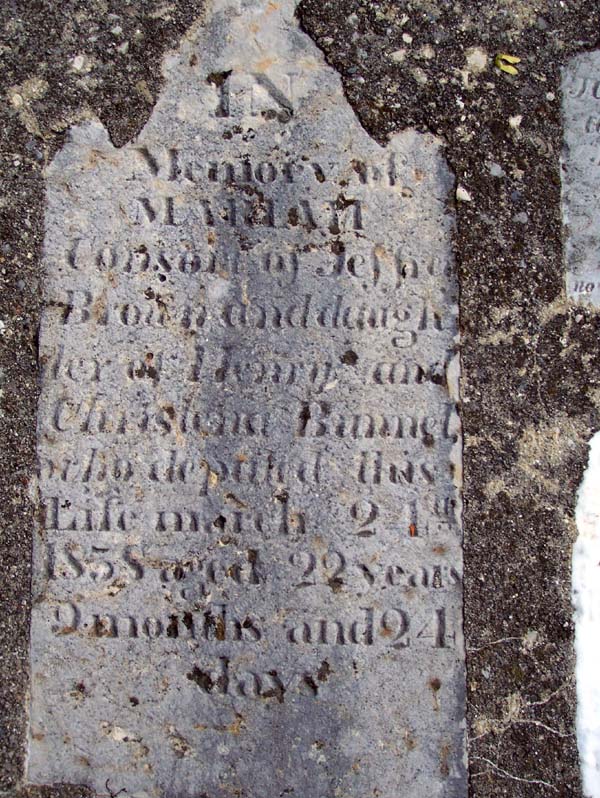 IN
Memory of
MARIAM
Consort of Jeffre
Brown and daugh
ter of Henry and
Christena Bummel
who departed this
Life march 24th
1838 aged 22 years
9 months and 24
days